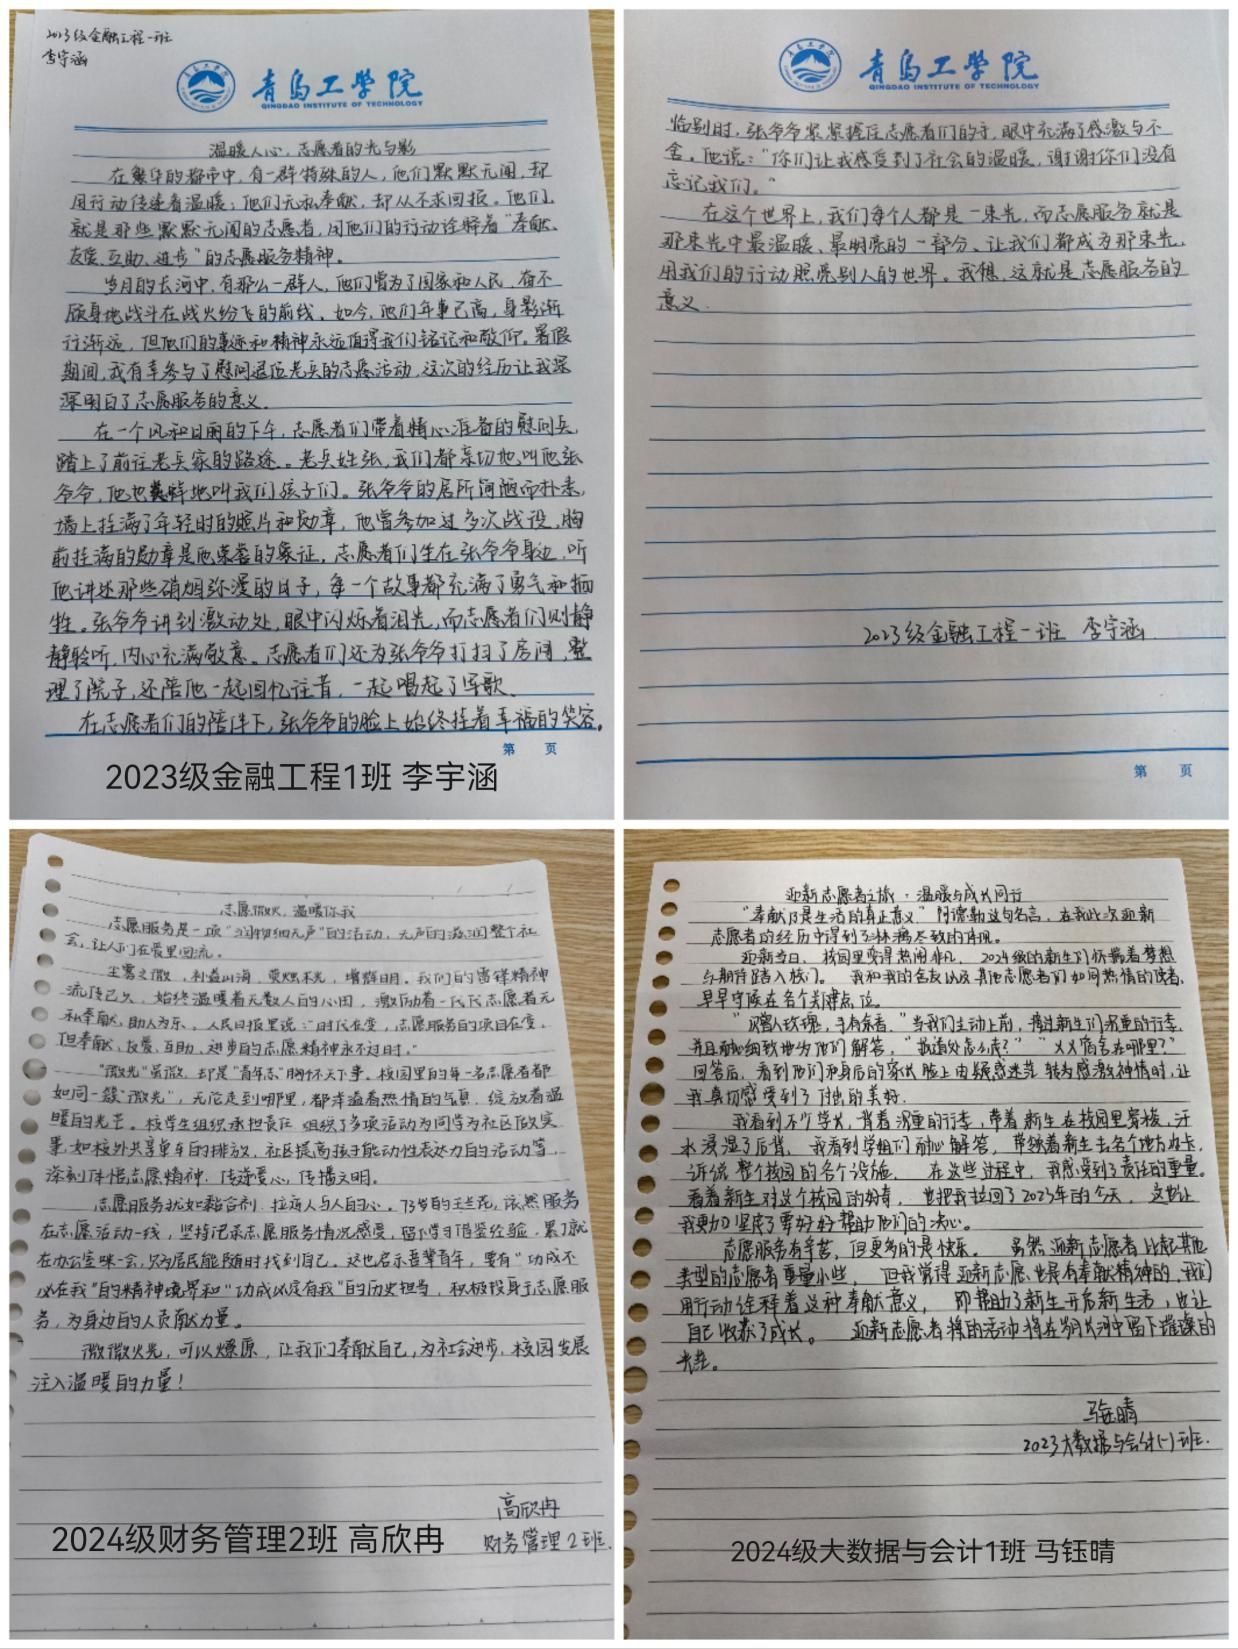 2023级金融工程一班
李宇涵
青岛工学院
QINGDAO INSTITUTE OF TECHNOLOGY
温暖人心，志愿者的光与影
在繁华的都市中，有一群特殊的人，他们默默无闻，却
用行动传递着温暖；他们无私奉献，却从不求回报。他们，
就是那些默默无闻的志愿者，用他们的行动诠释着“奉献、
友爱、互助、进步”的志愿服务精神。
岁月的长河中，有那么一群人，他们曾为了国家和人民，奋不
顾身地战斗在战火纷飞的前线。如今，他们年事已高，身影渐
行渐远，但他们的事迹和精神永远值得我们铭记和敬仰。暑假
期间，我有幸参与了慰问退伍老兵的志愿活动，这次的经历让我深
深明白了志愿服务的意义。
在一个风和日丽的下午，志愿者们带着精心准备的慰问品，
踏上了前往老兵家的路途。老兵姓张，我们都亲切地叫他张
爷爷，他也地叫我们孩子们。张爷爷的居所简陋而朴素，
墙上挂满了年轻时的照片和勋章，他曾参加过多次战役，胸
前挂满的勋章是他荣誉的象征，志愿者们坐在张爷爷身边，听
他讲述那些硝烟弥漫的日子，每一个故事都充满了勇气和牺
牲。张爷爷讲到激动处，眼中闪烁着泪光，而志愿者们则静
静聆听，内心充满敬意。志愿者们还为张爷爷打扫了房间，整
理了院子，还陪他一起回忆往昔，一起唱起了军歌、
在志愿者们的陪伴下，张爷爷的脸上始终挂着幸福的笑容。
第 页
2023级金融工程1班 李宇涵
青岛工学院
QINGDAO INSTITUTE OF TECHNOLOGY
临别时，张爷爷紧紧握住志愿者们的手，眼中充满了感激与不
舍。他说：“你们让我感受到了社会的温暖，谢谢你们没有
忘记我们。”
在这个世界上，我们每个人都是一束光，而志愿服务就是
那束光中最温暖、最明亮的一部分、让我们都成为那束光，
用我们的行动照亮别人的世界。我想，这就是志愿服务的
意义．
2023级金融工程一班 李宇涵
第 页
志愿微火，温暖你我
志愿服务是一项“润物细无声”的活动，无声的滋润整个社
会，让人们在爱里回流。
尘雾之微，补益山海，荧烛末光，增辉日月。我们的雷锋精神
流传已久，始终温暖着无数人的心田，激励着一代代志愿者无
私奉献，助人为乐。人民日报里说：“时代在变，志愿服务的项目在变，
但奉献、友爱、互助、进步的志愿精神永不过时。”
“微光”虽微，却是“青年志”胸怀天下事。校园里的每一名志愿者都
如同一簇“微光”，无论走到哪里，都洋溢着热情的气息，绽放着温
暖的光芒。校学生组织承担责任，组织了多项活动为同学为社区做实
事，如校外共享单车的排放，社区提高孩子能动性表达力的活动等，
深刻体悟志愿精神，传递爱心，传播文明。
志愿服务犹如黏合剂，拉近人与人的心。73岁的王兰花，依然服务
在志愿活动一线，坚持记录志愿服务情况感受，留下学习借鉴经验，累了就
在办公室眯一会，只为居民能随时找到自己。这也启示吾辈青年，要有“功成不
必在我”的精神境界和“功成必定有我”的历史担当，积极投身于志愿服
务，为身边的人贡献力量。
微微火光，可以燎原，让我们奉献自己，为社会进步，校园发展
注入温暖的力量！
高欣冉
财务管理2班.
2024级财务管理2班 高欣冉
迎新志愿者之旅·温暖与成长同行
“奉献乃是生活的真正意义”阿德勒这句名言，在我此次迎新
志愿者的经历中得到了淋漓尽致的体现。
迎新当日，校园里变得热闹非凡，2024级的新生们怀揣着梦想
与期待踏入校门。我和我的舍友以及其他志愿者们如同热情的使者，
早早守候在各个关键点位。
“赠人玫瑰，手有余香。”当我们主动上前，接过新生们沉重的行李，
并且耐心细致地为他们解答，“报道处怎么走？”“XX宿舍在哪里？”
回答后，看到他们和身后的家长脸上由疑惑迷茫转为感激神情时，让
我真切感受到了付出的美好。
我看到不少学长，背着沉重的行李，带着新生在校园里穿梭，汗
水浸湿了后背，我看到学姐们耐心解答，带领着新生去各个地方办卡，
诉说整个校园的各个设施。在这些过程中，我感受到了责任的重量。
看着新生对这个校园的好奇，也把我拉回了2023年的今天，这也让
我更加坚定了要好好帮助他们的决心。
志愿服务有辛苦，但更多的是快乐。虽然迎新志愿者比起其他
类型的志愿者重量小些，但我觉得迎新志愿也是有奉献精神的，我们
用行动诠释着这种奉献意义，即帮助了新生开启新生活，也让
自己收获了成长。迎新志愿者接的活动将在岁月长河中留下璀璨的
光芒。
马钰晴
2023大数据与会计(一)班.
2024级大数据与会计1班 马钰晴